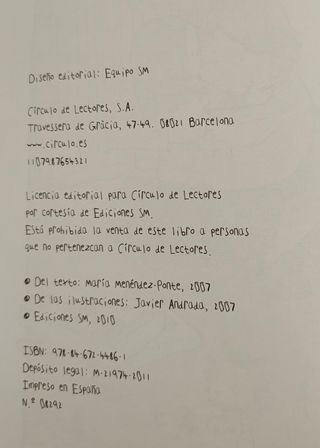 Diseño editorial: Equipo SM
Círculo de Lectores, S.A.
Travessera de Gràcia, 47-49. 08021 Barcelona
www.circulo.es
1107987654321
Licencia editorial para Círculo de Lectores
por cortesía de Ediciones SM.
Está prohibida la venta de este libro a personas
que no pertenezcan a Círculo de Lectores.
© Del texto: María Menéndez-Ponte, 2007
© De las ilustraciones: Javier Andrada, 2007
© Ediciones SM, 2010
ISBN: 978-84-672-4486-1
Depósito legal: M-21974-2011
Impreso en España
N.º 08292